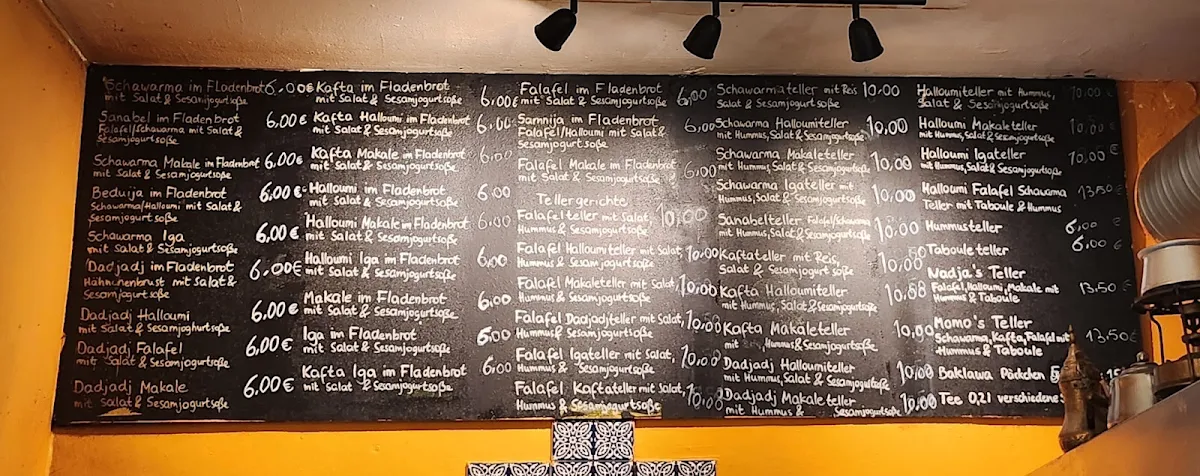 Schawarma im Fladenbrot 6,00€
mit Salat & Sesamjogurtsoße
Sanabel im Fladenbrot 6,00€
Falafel/Schawarma mit Salat &
Sesamjogurtsoße
Schawarma Makale im Fladenbrot 6,00€
mit Salat & Sesamjogurtsoße
Beduija im Fladenbrot 6,00€
Schawarma/Halloumi mit Salat &
Sesamjogurt soße
Schawarma Iga 6,00€
mit Salat & Sesamjogurtsoße
Dadjadj im Fladenbrot 6.00€
Hähnchenbrust mit Salat &
Sesamjogurtsoße
Dadjadj Halloumi 6.00€
mit Salat & Sesamjoghurtsoße
Dadjadj Falafel 6,00€
mit Salat & Sesamjogurtsoße
Dadjadj Makale 6.00€
mit Salat & Sesamjogurtsoße
Kafta im Fladenbrot 6,00€
mit Salat & Sesamjogurtsoße
Kafta Halloumi im Fladenbrot 6,00
mit Salat & Sesamjogurtsoße
Kafta Makale im Fladenbrot 6,00
mit Salat & Sesamjogurtsoße
Halloumi im Fladenbrot 6,00
mit Salat & Sesamjogurtsoße
Halloumi Makale im Fladenbrot 6,00
mit Salat & Sesamjogurtsoße
Halloumi Iga im Fladenbrot 6,00
mit Salat & Sesamjogurtsoße
Makale im Fladenbrot 6,00
mit Salat & Sesamjogurtsoße
Iga im Fladenbrot 6,00
mit Salat & Sesamjogurtsoße
Kafta Iga im Fladenbrot 6,00
mit Salat & Sesamjogurtsoße
Falafel im Fladenbrot 6,00
mit Salat & Sesamjogurtsoße
Samnija im Fladenbrot 6,00
Falafel/Halloumi mit Salat &
Sesamjogurtsoße
Falafel Makale im Fladenbrot 6,00
mit Salat & Sesamjogurtsoße
Tellergerichte
Falafelteller mit Salat, 10,00
Hummus & Sesamjogurtsoße
Falafel Halloumiteller mit Salat, 10,00
Hummus & Sesamjogurtsoße
Falafel Makaleteller mit Salat, 10,00
Hummus & Sesamjogurtsoße
Falafel Dadjadjteller mit Salat, 10,00
Hummus & Sesamjogurtsoße
Falafel Igateller mit Salat, 10,00
Hummus & Sesamjogurtsoße
Falafel Kaftateller mit Salat, 10,00
Hummus & Sesamjogurtsoße
Schawarmateller mit Reis 10,00
Salat & Sesamjogurtsoße
Schawarma Halloumiteller 10,00
mit Hummus, Salat & Sesamjogurtsoße
Schawarma Makaleteller 10,00
mit Hummus, Salat & Sesamjogurtsoße
Schawarma Igateller mit 10,00
Hummus, Salat & Sesamjogurtsoße
Sanabelteller Falafel/Schawarma 10,00
mit Hummus, Salat & Sesamjogurtsoße
Kaftateller mit Reis, 10,00
Salat & Sesamjogurt soße
Kafta Halloumiteller 10,00
mit Hummus, Salat & Sesamjogurtsoße
Kafta Makaleteller 10,00
mit Hummus, Salat & Sesamjogurtsoße
Dadjadj Halloumiteller 10,00
mit Hummus, Salat & Sesamjogurtsoße
Dadjadj Makaleteller 10,00
mit Hummus & Sesamjogurtsoße
Halloumiteller mit Hummus, 10,00 €
Salat & Sesamjogurtsoße
Halloumi Makaleteller 10,00 €
mit Hummus, Salat & Sesamjogurtsoße
Halloumi Igateller 10,00 €
mit Hummus, Salat & Sesamjogurtsoße
Halloumi Falafel Schawarma 13,50 €
Teller mit Taboule & Hummus
Hummusteller 6,00 €
Tabouleteller 6,00 €
Nadja's Teller
Falafel, Halloumi, Makale mit 13,50 €
Hummus & Taboule
Momo's Teller
Schawarma, Kafta, Falafel mit 13,50€
Hummus & Taboule
Baklawa Päckchen
Tee 0,2l verschiedene